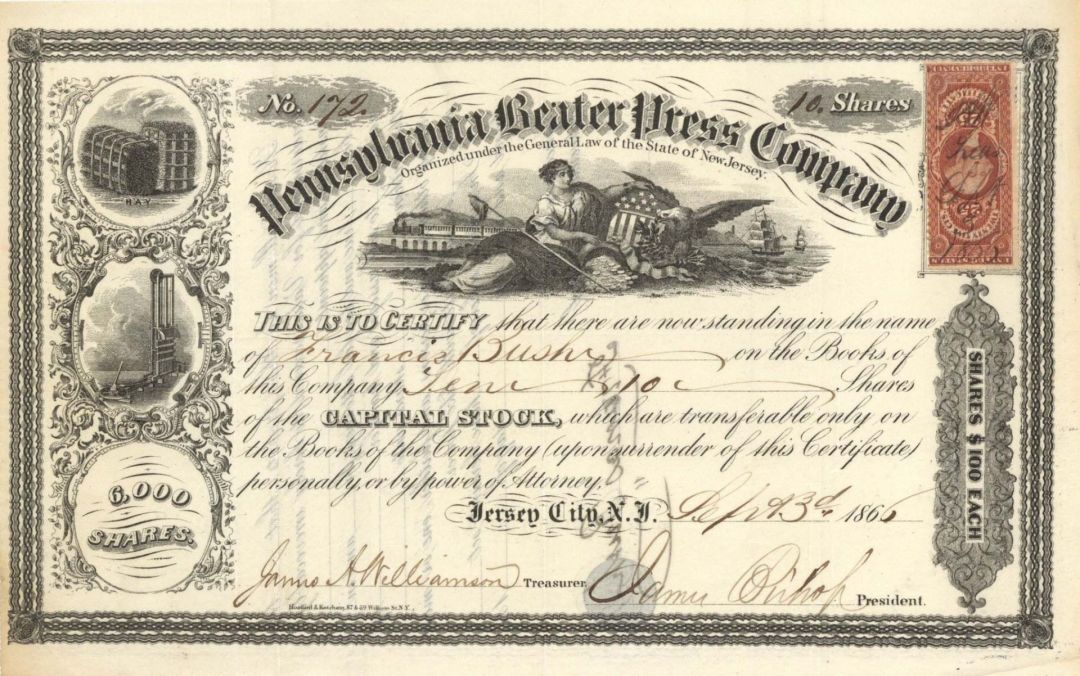 No. 172.
10. Shares
Pennsylvania Beater Press Company
Organized under the General Law of the State of New Jersey.
HAY
THIS IS TO CERTIFY that there are now standing in the name
of Francis Bush on the Books of
this Company Ten 10 Shares
of the CAPITAL STOCK, which are transferable only on
the Books of the Company (upon surrender of this Certificate)
personally, or by power of Attorney.
Jersey City, N.J. Sept 3d 1866
6,000
SHARES.
SHARES $100 EACH
James A. Williamson Treasurer.
James Bishop President.
87 & 89 William St. N.Y.